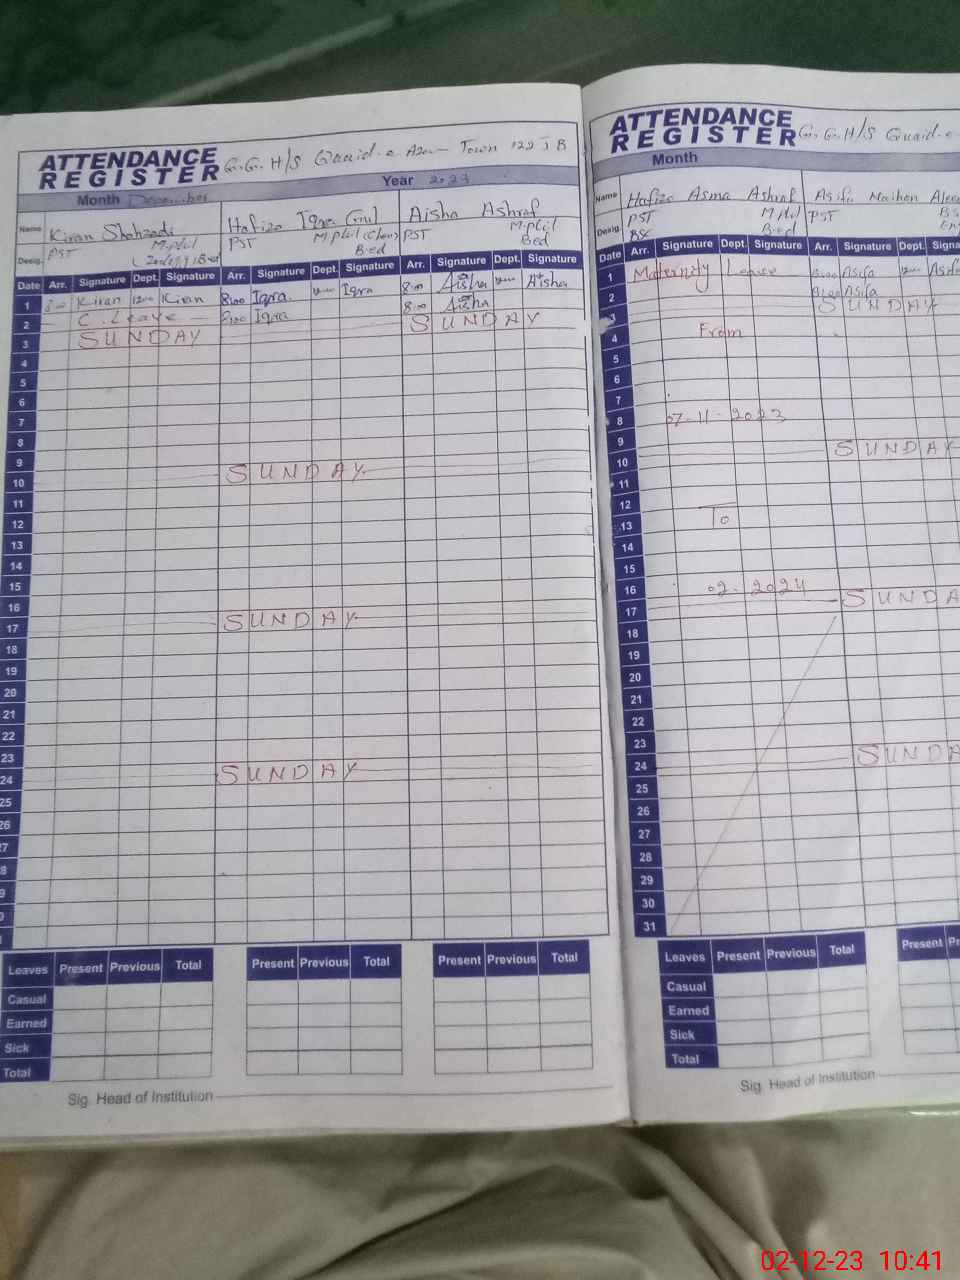 ATTENDANCE REGISTER G.G.H/S Quaid-e Azam Town 122 J B
Month December Year 2023
Name Kiran Shahzadi Hafiza Iqra Aisha Ashraf
Desig. PST M.phil PST M.phil B.ed PST M.phil Bed
Date Arr. Signature Dept. Signature Arr. Signature Dept. Signature Arr. Signature Dept. Signature
1 8:00 Kiran 12:00 Kiran 8:00 Iqra Iqra 8:00 Aisha Aisha
2 C. Leave 8:00 Iqra 8:00 Aisha
3 SUNDAY SUNDAY
4
5
6
7
8
9
10 SUNDAY
11
12
13
14
15
16
17 SUNDAY
18
19
20
21
22
23
24 SUNDAY
25
26
27
Leaves Present Previous Total Present Previous Total Present Previous Total
Casual
Earned
Sick
Total
Sig. Head of Institution
ATTENDANCE REGISTER G.G.H/S Quaid-e
Month
Name Hafiza Asma Ashraf Asifa
Desig. PST BSc M.phil B.ed PST
Date Arr. Signature Dept. Signature Arr. Signature Dept. Signature
1 Maternity Leave 8:00 Asifa
2 8:00 Asifa
3 SUNDAY
4 From
5
6
7
8 07-11-2023
9
10 SUNDAY
11
12
13 To
14
15
16 02-2024
17 SUNDA
18
19
20
21
22
23
24 SUNDA
25
26
27
28
29
30
31
Leaves Present Previous Total Present
Casual
Earned
Sick
Total
Sig. Head of Institution
02-12-23 10:41